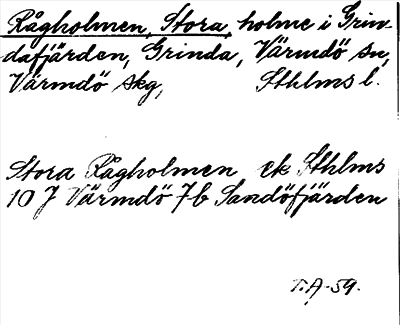 Rågholmen, Stora, holme i Grin-
dafjärden, Grinda, Värmdö sn,
Värmdö skg, Sthlms l.
Stora Rågholmen ek Sthlms
10 J Värmdö 7b Sandöfjärden
T.A-59.